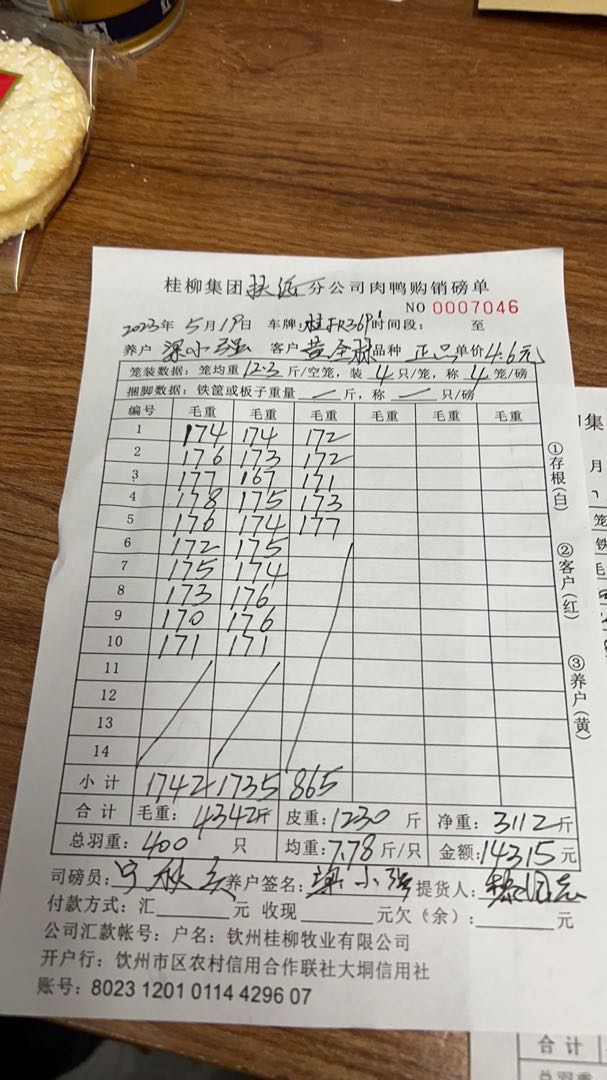 桂柳集团 扶绥 分公司肉鸭购销磅单
NO 0007046
2023年 5月19日 车牌: 时间段: 至
养户 梁小强 客户 黄全 品种 正品 单价 4.6元
笼装数据: 笼均重 12.3 斤/空笼, 装 4 只/笼, 称 4 笼/磅
捆脚数据: 铁筐或板子重量 / 斤, 称 / 只/磅
编号 毛重 毛重 毛重 毛重 毛重 毛重
1 174 174 172
2 176 173 172
3 177 167 171
4 178 175 173
5 176 174 177
6 172 175
7 175 174
8 173 176
9 170 176
10 171 171
11
12
13
14
小计 1742 1735 865
合计 毛重: 4342斤 皮重: 1230 斤 净重: 3112斤
总羽重: 400 只 均重: 7.78 斤/只 金额: 14315 元
司磅员: 养户签名: 梁小强 提货人:
付款方式: 汇 元 收现 元欠(余): 元
公司汇款帐号: 户名: 钦州桂柳牧业有限公司
开户行: 饮州市区农村信用合作联社大垌信用社
账号: 8023 1201 0114 4296 07
①存根(白)
②客户(红)
③养户(黄)
集
月
笼
铁
毛
合计
总羽重